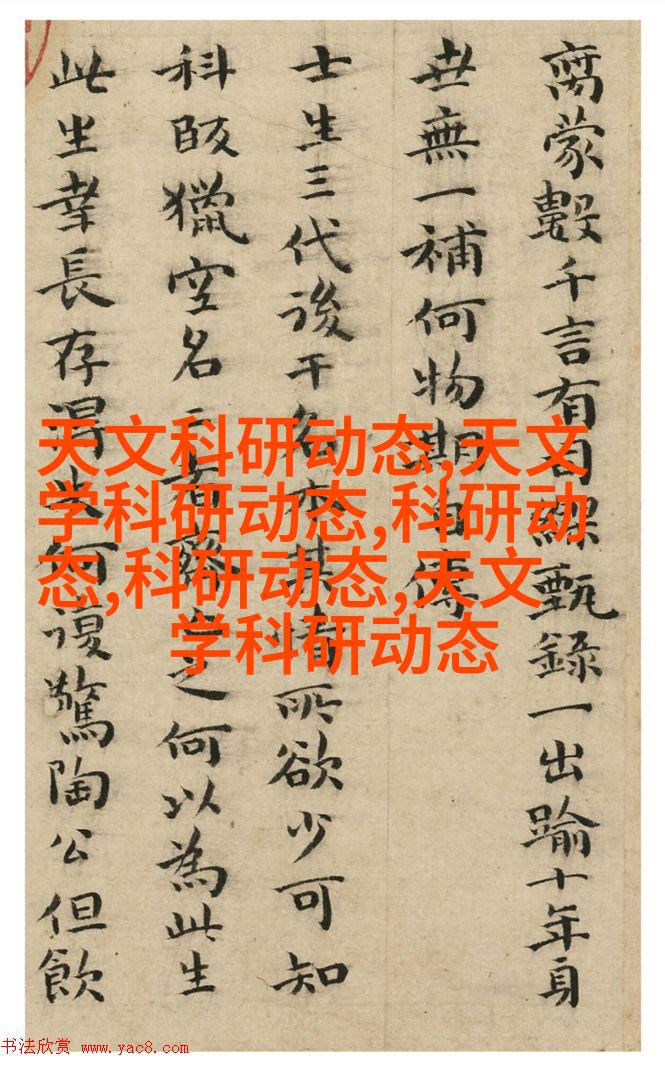 蒙數千言有司繆甄録一出踰十年身
世無一補何物期自傳
士生三代後干名亦其情所欲少可知
科畋獵空名二者之何以為此生
此生幸長存得失何復驚陶公但飲
天文科研动态,天文
学科研动态,科研动
态,科研动态,天文
学科研动态
书法欣赏 www.yac8.com